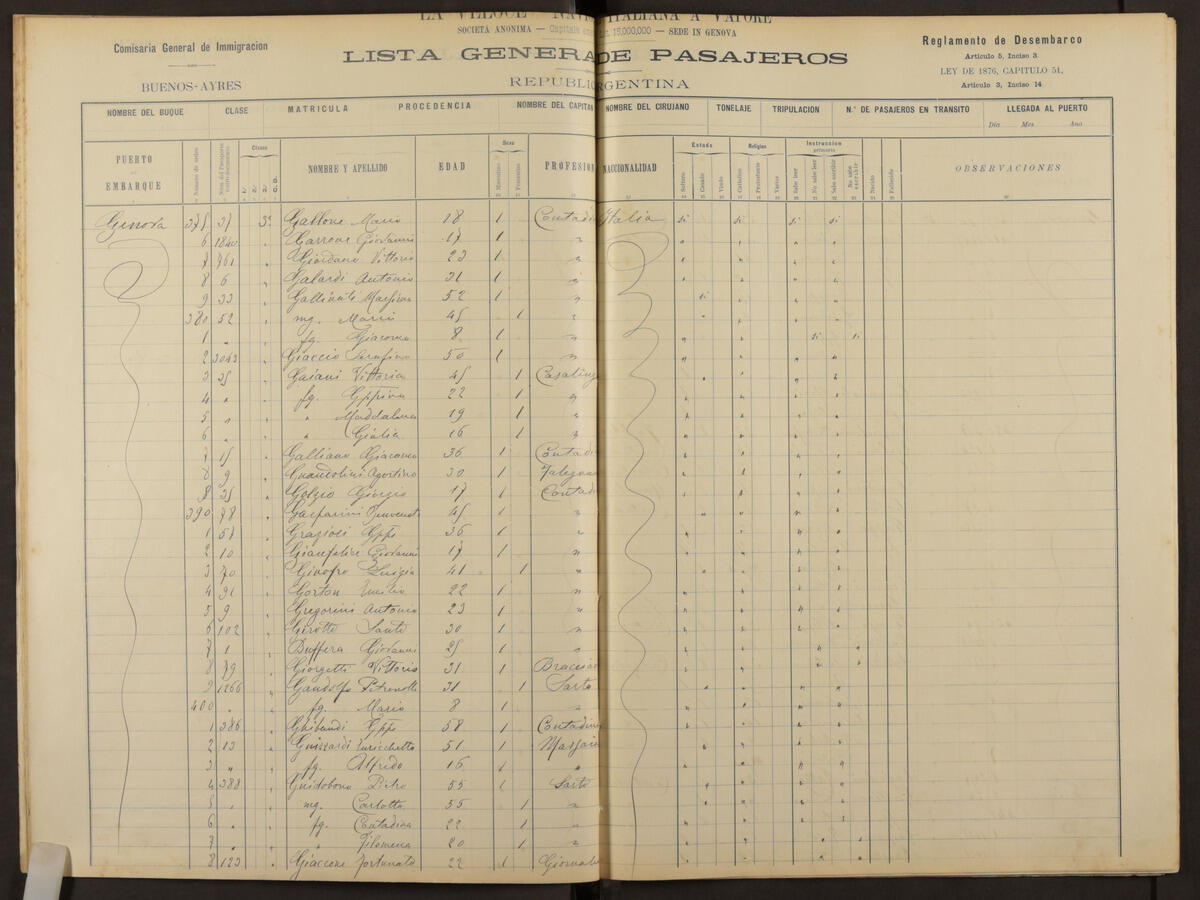 LA VELOCE NAV ITALIANA A VAPORE
SOCIETÀ ANONIMA — Capitale 15,000,000 — SEDE IN GENOVA
Comisaria General de Immigracion
BUENOS-AYRES
LISTA GENERA DE PASAJEROS
REPUBLIC RGENTINA
Reglamento de Desembarco
Articulo 5, Inciso 3
LEY DE 1876, CAPITULO 51,
Articulo 3, Inciso 14
NOMBRE DEL BUQUE CLASE MATRICULA PROCEDENCIA NOMBRE DEL CAPITAN NOMBRE DEL CIRUJANO TONELAJE TRIPULACION N.º DE PASAJEROS EN TRANSITO LLEGADA AL PUERTO
Dia Mes Ano
PUERTO EMBARQUE Clase NOMBRE Y APELLIDO EDAD Sexo Masculino Femenino PROFESION NACCIONALIDAD Estado Soltero Casado Viudo Religion Catolica Protestante Varias Instruccion primaria Sabe leer No sabe leer Sabe escribir No sabe escribir Nacido Fallecido OBSERVACIONES
Genova 375 37 3ª Gallone Mario 18 1 Contadi Italia si si si si
6 1840 " Garrone Giovanni 17 1 "
7 761 " Giordano Vittorio 23 1 "
8 6 " Galardi Antonio 31 1 "
9 33 " 52 1 " si
380 52 " mg. Maria 45 1 "
1 " " fg. Giacomo 8 1 " si si
2 3043 " Giaccio Serafino 50 1 "
3 35 " Gaiani Vittoria 45 1 Casalinga
4 " " fg. Gppina 22 1 "
5 " " " Maddalena 19 1 "
6 " " " Giulia 16 1 "
7 15 " Galliano Giacomo 36 1 Contadi
8 9 " Guandolini Agostino 30 1 Falegna
8 35 " Golzio Giorgio 17 1 Contad
390 78 " Gasparini Benvenuto 45 1 "
1 57 " Grazioli Gppe 36 1 "
2 10 " Gianfelice Giovanni 17 1 "
3 70 " Ginofro Luigia 41 1 "
4 91 " Gorton Emilio 22 1 "
5 9 " Gregorini Antonio 23 1 "
6 102 " Girotto Santo 30 1 "
7 1 " Buffera Giovanni 25 1 "
8 79 " Giorgetti Vittorio 31 1 Braccian
9 1266 " Gandolfo Petronilla 31 1 Sarto
400 " " fg. Mario 8 1 "
1 386 " Ghibaudi Gppe 58 1 Contadino
2 13 " Guizzardi Enrichetto 51 1 Massaia
3 " " fg. Alfredo 16 1 "
4 388 " Guidobono Pietro 55 1 Sarto
5 " " mg. Carlotta 55 1 "
6 " " fg. 22 1 "
7 " " " Filomena 20 1 "
8 123 " Giaccone Fortunato 22 1 Giornali